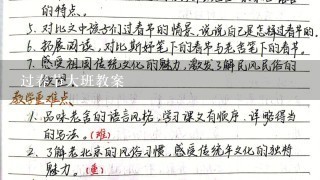 的特点。
5. 对比文中孩子们过春节的情景,说说自己是怎样过春节的。
6. 拓展阅读,对比斯妤笔下的春节与老舍笔下的春节。
7. 感受祖国传统文化的魅力,激发了解民风民俗的
过春节大班教案
教学重难点、
1. 品味老舍的语言风格,学习课文有顺序、详略得当
的写法。(难)
2. 了解老北京的风俗习惯,感受传统年文化的独特
魅力。(重)